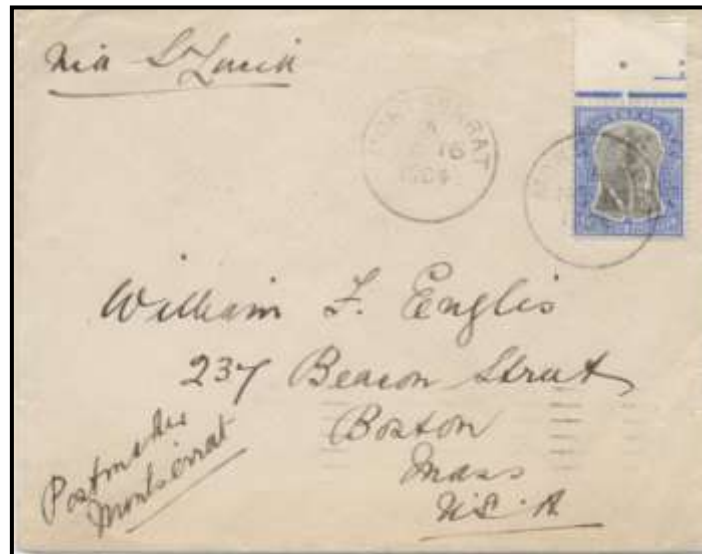 Via St Lucia
MONTSERRAT
A
16
1904
William F. Englis
237 Beacon Street
Boston
Mass
U.S.A
Postmaster
Montserrat